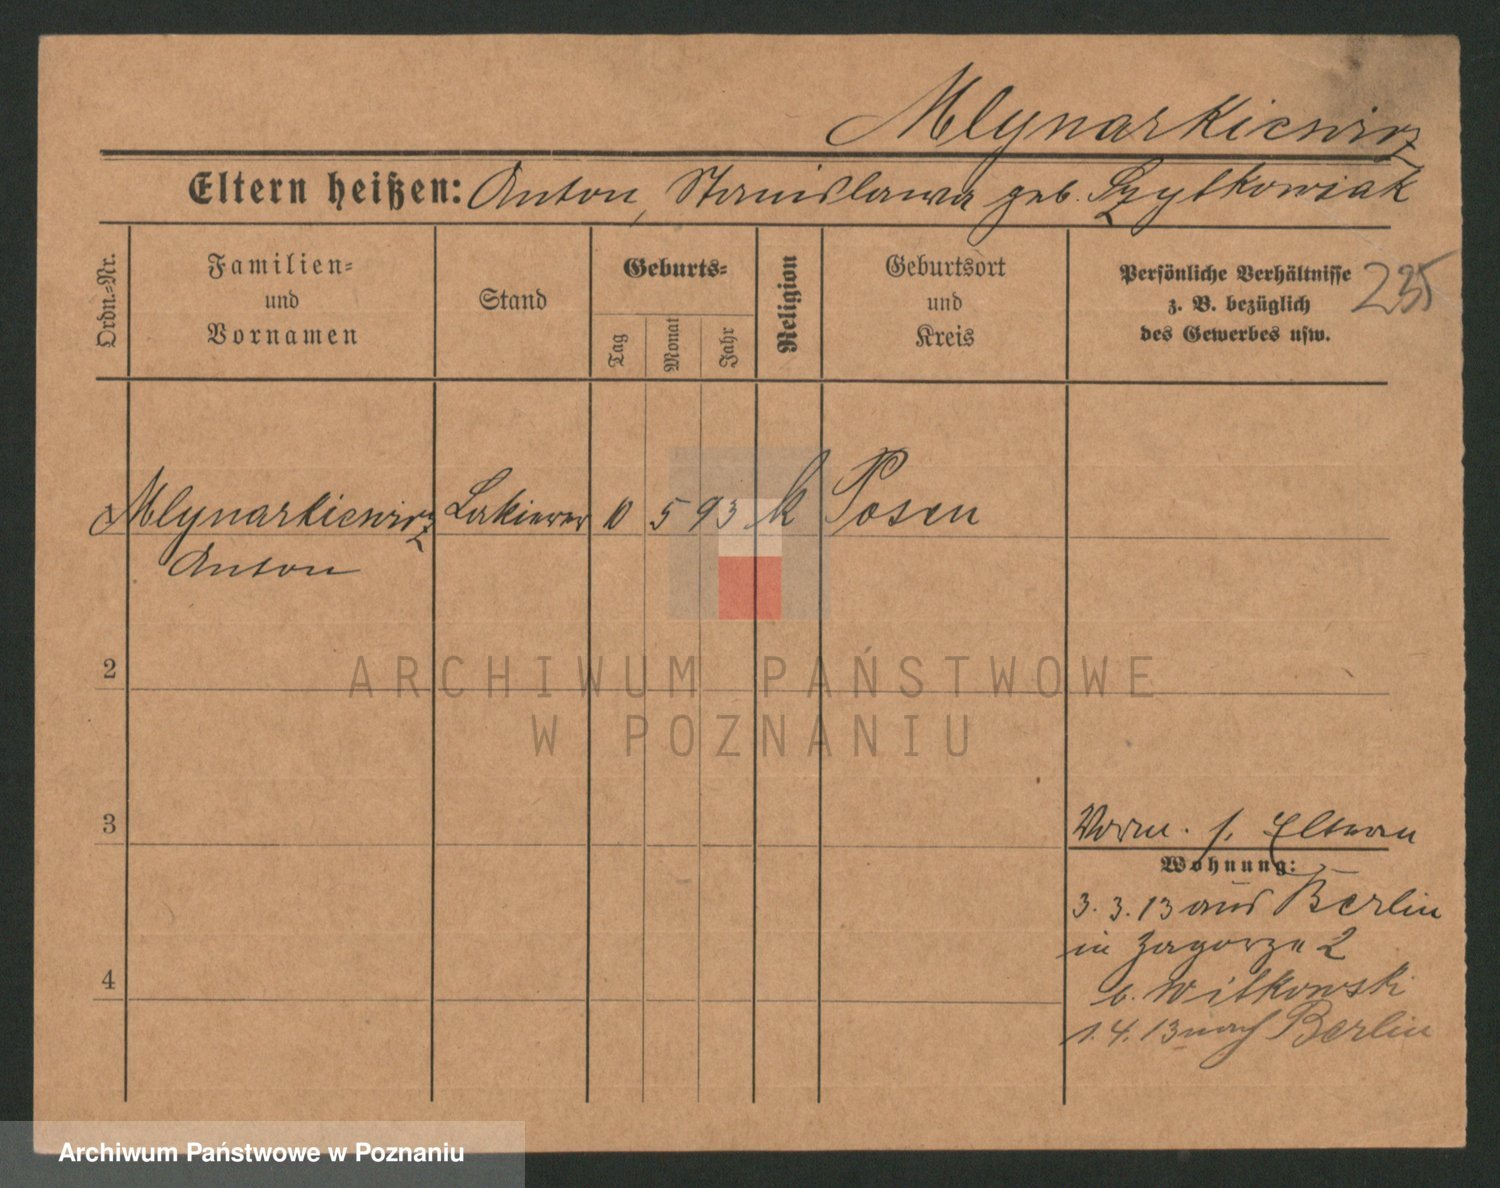 Mlynarkiewicz
Eltern heißen: Anton, Stanislawa geb. Szytkowiak
Ordn.-Nr.
Familien-
und
Vornamen
Stand
Geburts-
Tag
Monat
Jahr
Religion
Geburtsort
und
Kreis
Persönliche Verhältnisse
z. B. bezüglich
des Gewerbes usw.
235
1 Mlynarkiewicz Lakierer 10 5 93 k Posen
Anton
2
3
4
Vorm. s. Eltern
Wohnung:
3. 3. 13 aus Berlin
in Zagorze 2
b. Witkowski
1. 4. 13 nach Berlin
ARCHIWUM PAŃSTWOWE
W POZNANIU
Archiwum Państwowe w Poznaniu